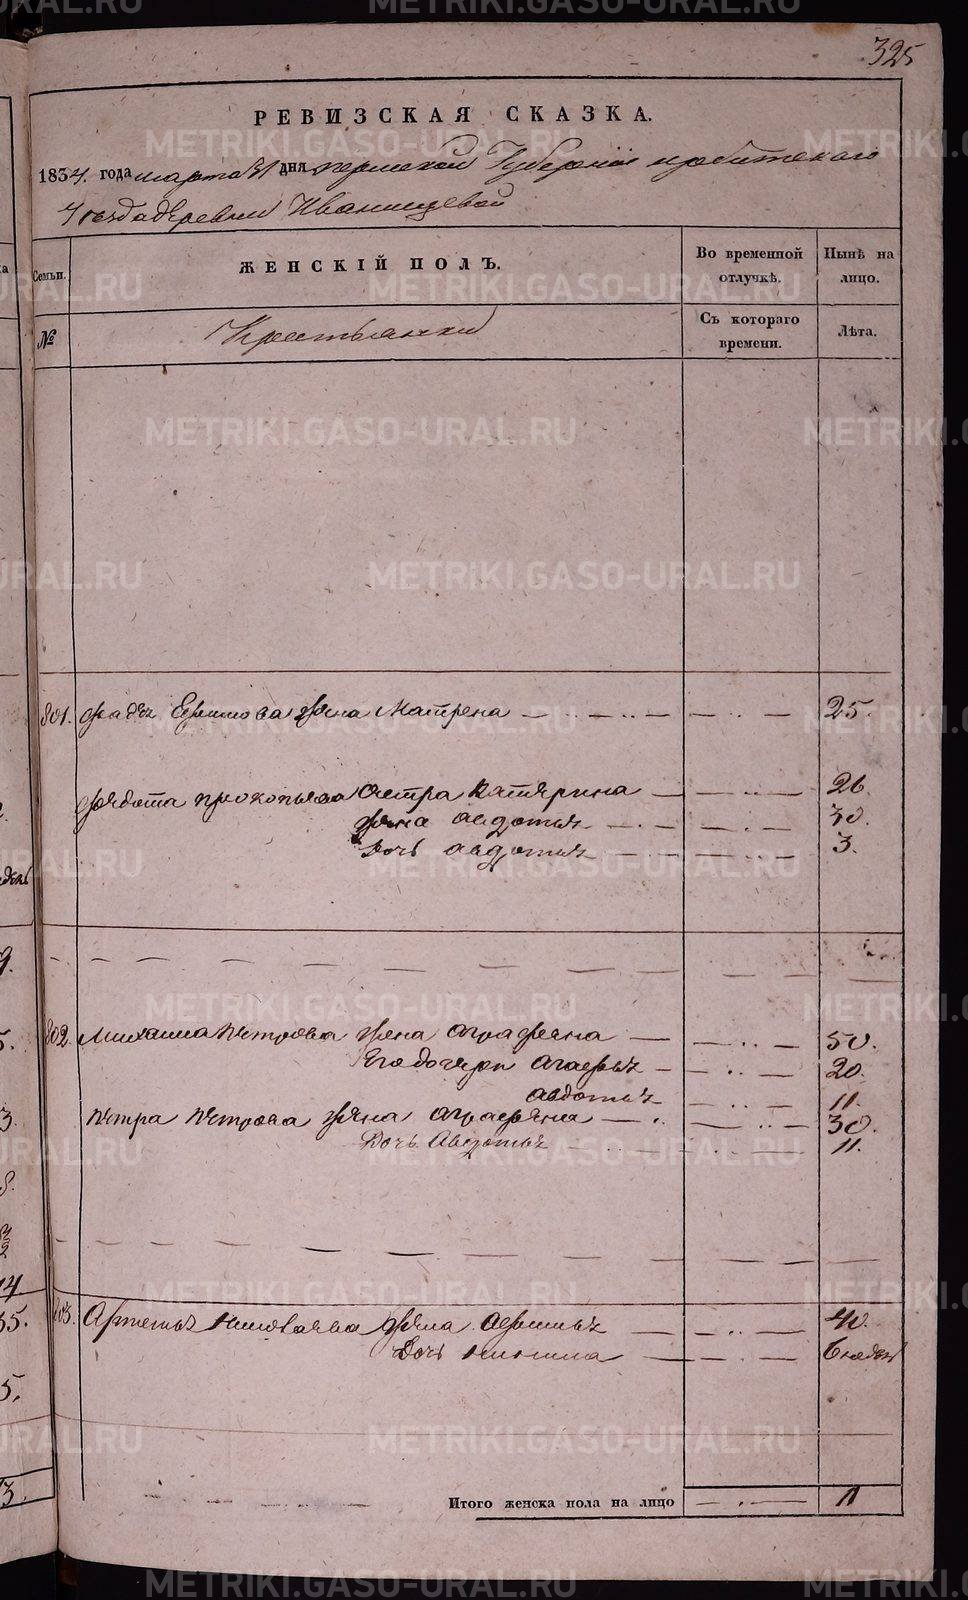 325
РЕВИЗСКАЯ СКАЗКА.
1834. года марта 31 дня пермской Губернии ирбитскаго
Уезда деревни Иванищевой
Семьи. ЖЕНСКІЙ ПОЛЪ. Во временной отлучкѣ. Нынѣ на лицо.
№ Крестьянки Съ котораго времени. Лѣта.
801. Фадея Ефимова жена Матрена 25.
Федота прокопьева сестра Катерина 26.
жена авдотья 30.
дочь авдотья 3.
802. Михаила Петрова жена аграфена 50.
Его дочери агафья 20.
авдотья 11.
Петра Петрова жена аграфена 30.
Дочь Авдотья 11.
803. Артемья жена афимья 40.
дочь 6 недель
Итого женска пола на лицо 11
METRIKI.GASO-URAL.RU